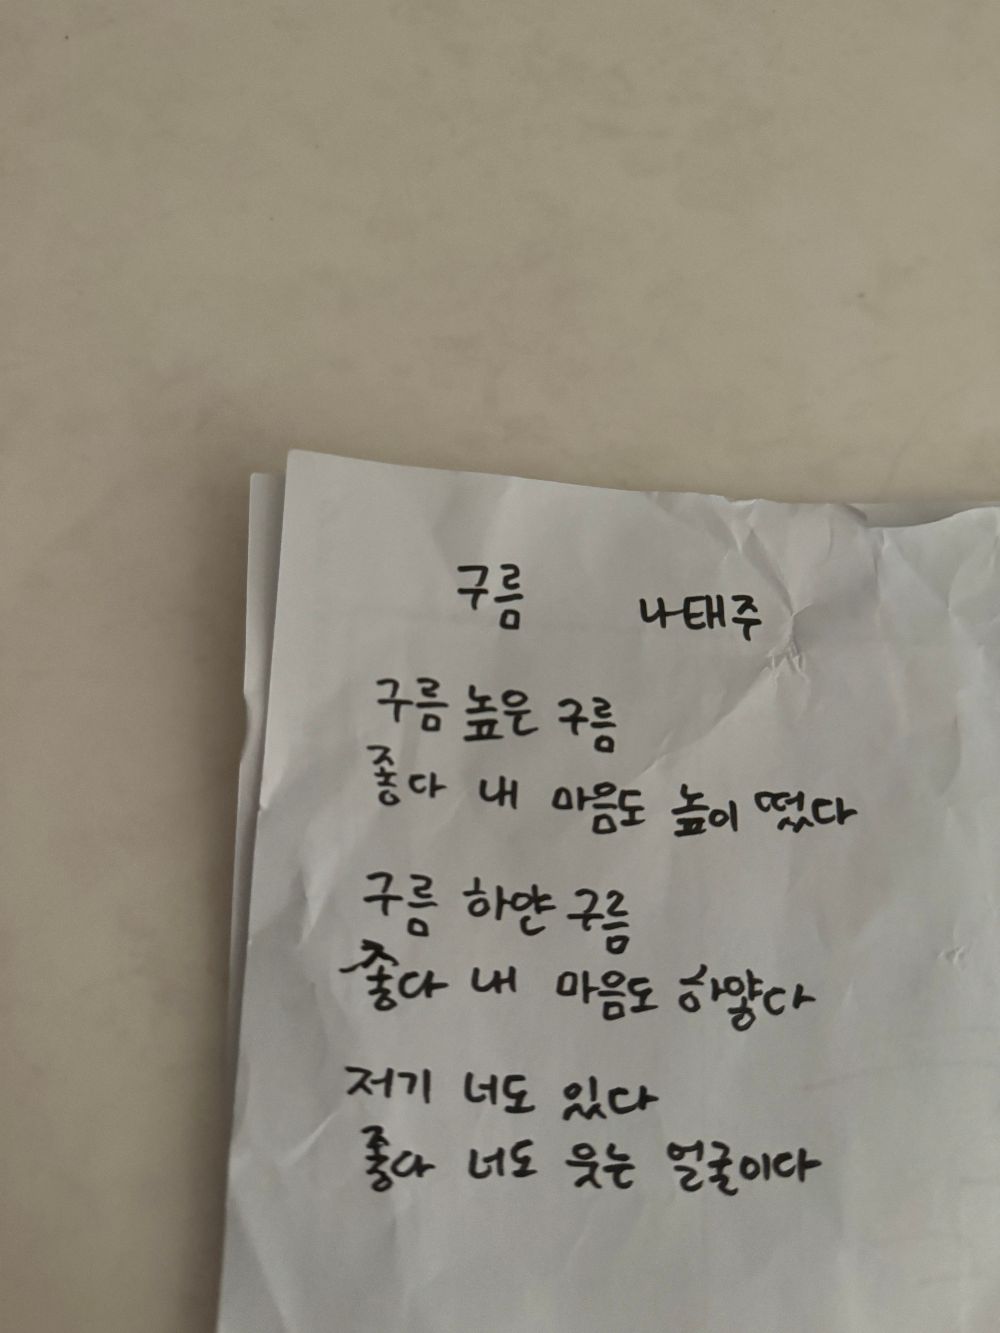 구름 나태주
구름 높은 구름
좋다 내 마음도 높이 떴다
구름 하얀 구름
좋다 내 마음도 하얗다
저기 너도 있다
좋다 너도 웃는 얼굴이다